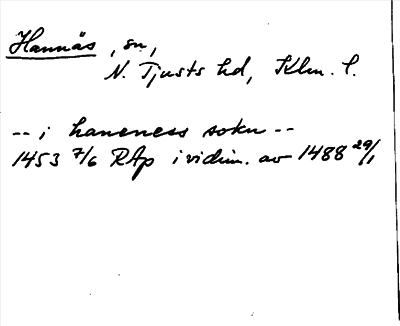 Hannäs, sn,
N. Tjusts hd, Klm. l.
-- i haneness sokn --
1453 7/6 RAp i vidim. av 1488 29/1